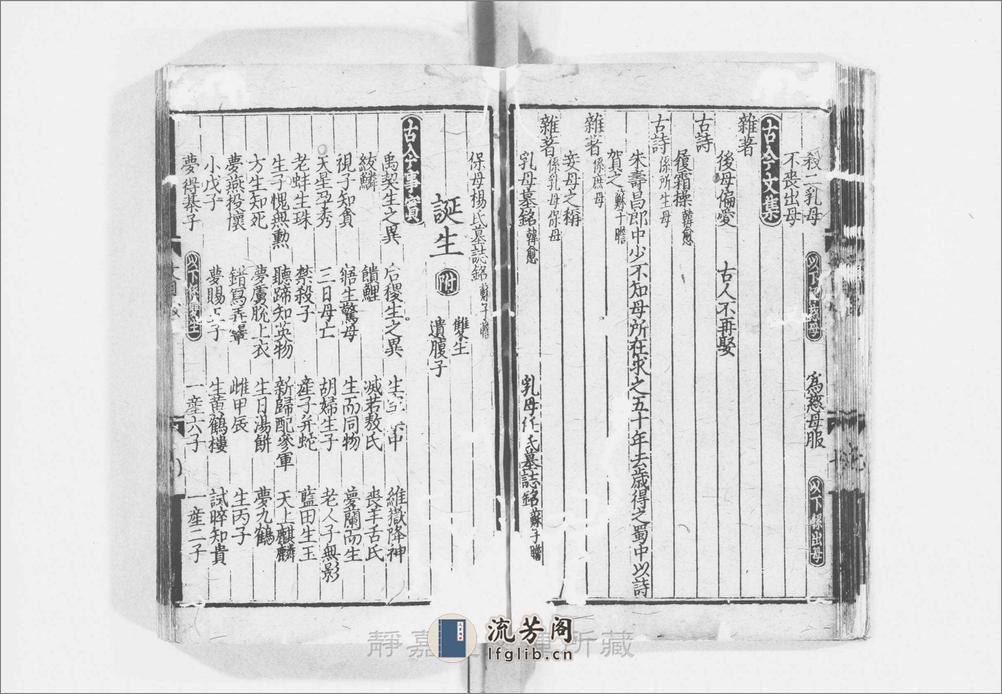 殺二乳母 以下慈母 為慈母服 以下嫁出母
不喪出母
古今文集
雜著
後母偏愛 古人不再娶
古詩
履霜操韓愈
古詩係所生母
朱壽昌郎中少不知母所在求之五十年去歲得之蜀中以詩
賀之蘇子瞻
雜著係庶母
妾母之稱
雜著係乳母保母
乳母墓銘韓愈 乳母任氏墓誌銘蘇子瞻
保母楊氏墓誌銘蘇子瞻
誕生 附 雙生 遺腹子
古今事實
禹契生之異 后稷生之異 生 申 維嶽降神
紱麟 饋鯉 滅若敖氏 喪羊舌氏
視子知貪 寤生驚母 生而同物 夢蘭而生
天星孕秀 三日母亡 胡婦生子 老人子無影
老蚌生珠 禁殺子 產子并蛇 藍田生玉
生子愧無勲 聽蹄知英物 新歸配參軍 天上麒麟
方生知死 夢虜脫上衣 生日湯餅 夢九鶴
夢燕投懷 錯寫弄麞 雌甲辰 生丙子
小戊子 夢賜 子 生黃鶴樓 試晬知貴
夢得綦子 以下雙生 一產六子 一產二子
靜嘉 所藏
流芳阁
lfglib.cn